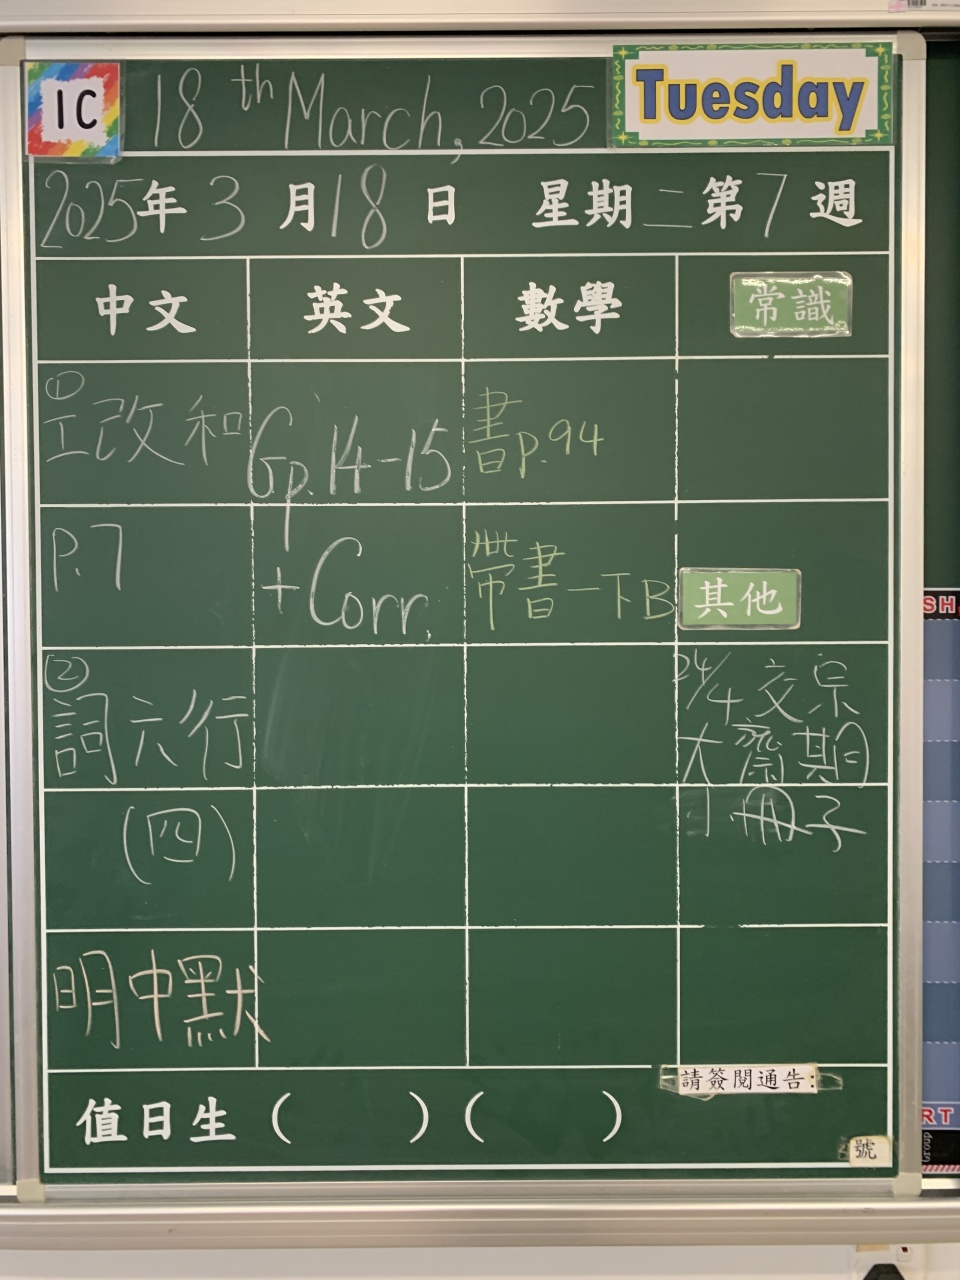 1C 18th March, 2025 Tuesday
2025年3月18日 星期二第7週
中文 英文 數學 常識
① 工改和 Gp.14-15 書p.94
P.7 + Corr. 帶書一下B 其他
② 詞六行 24/4 交宗
大齋期
(四) 小冊子
明中默
請簽閱通告:
值日生 ( ) ( )
號
SH
RT
Group